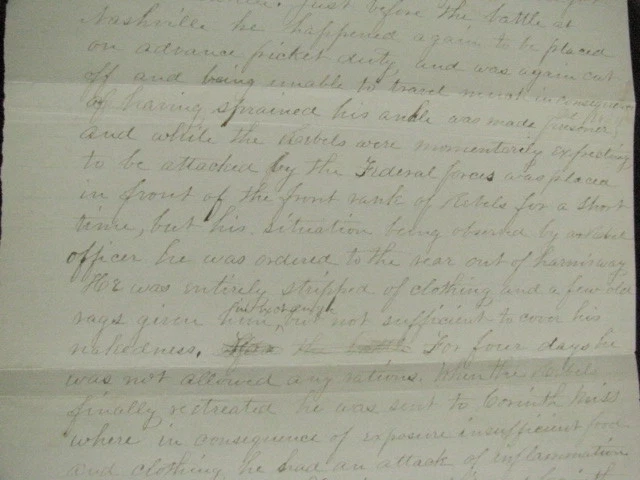 just before the battle at
Nashville he happened again to be placed
on advance picket duty, and was again cut
off and being unable to travel much in consequence
of having sprained his ankle was made prisoner,
and while the Rebels were momentarily expecting
to be attacked by the Federal forces was placed
in front of the front rank of Rebels for a short
time, but his situation being observed by a Rebel
officer he was ordered to the rear out of harms way.
He was entirely stripped of clothing and a few old
rags given him, but not sufficient to cover his
nakedness. For four days he
was not allowed any rations. When the Rebels
finally retreated he was sent to Corinth Miss
where in consequence of exposure insufficient food
and clothing he had an attack of inflammation